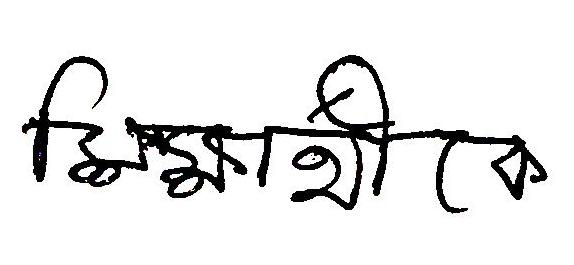 শিক্ষার্থীকে